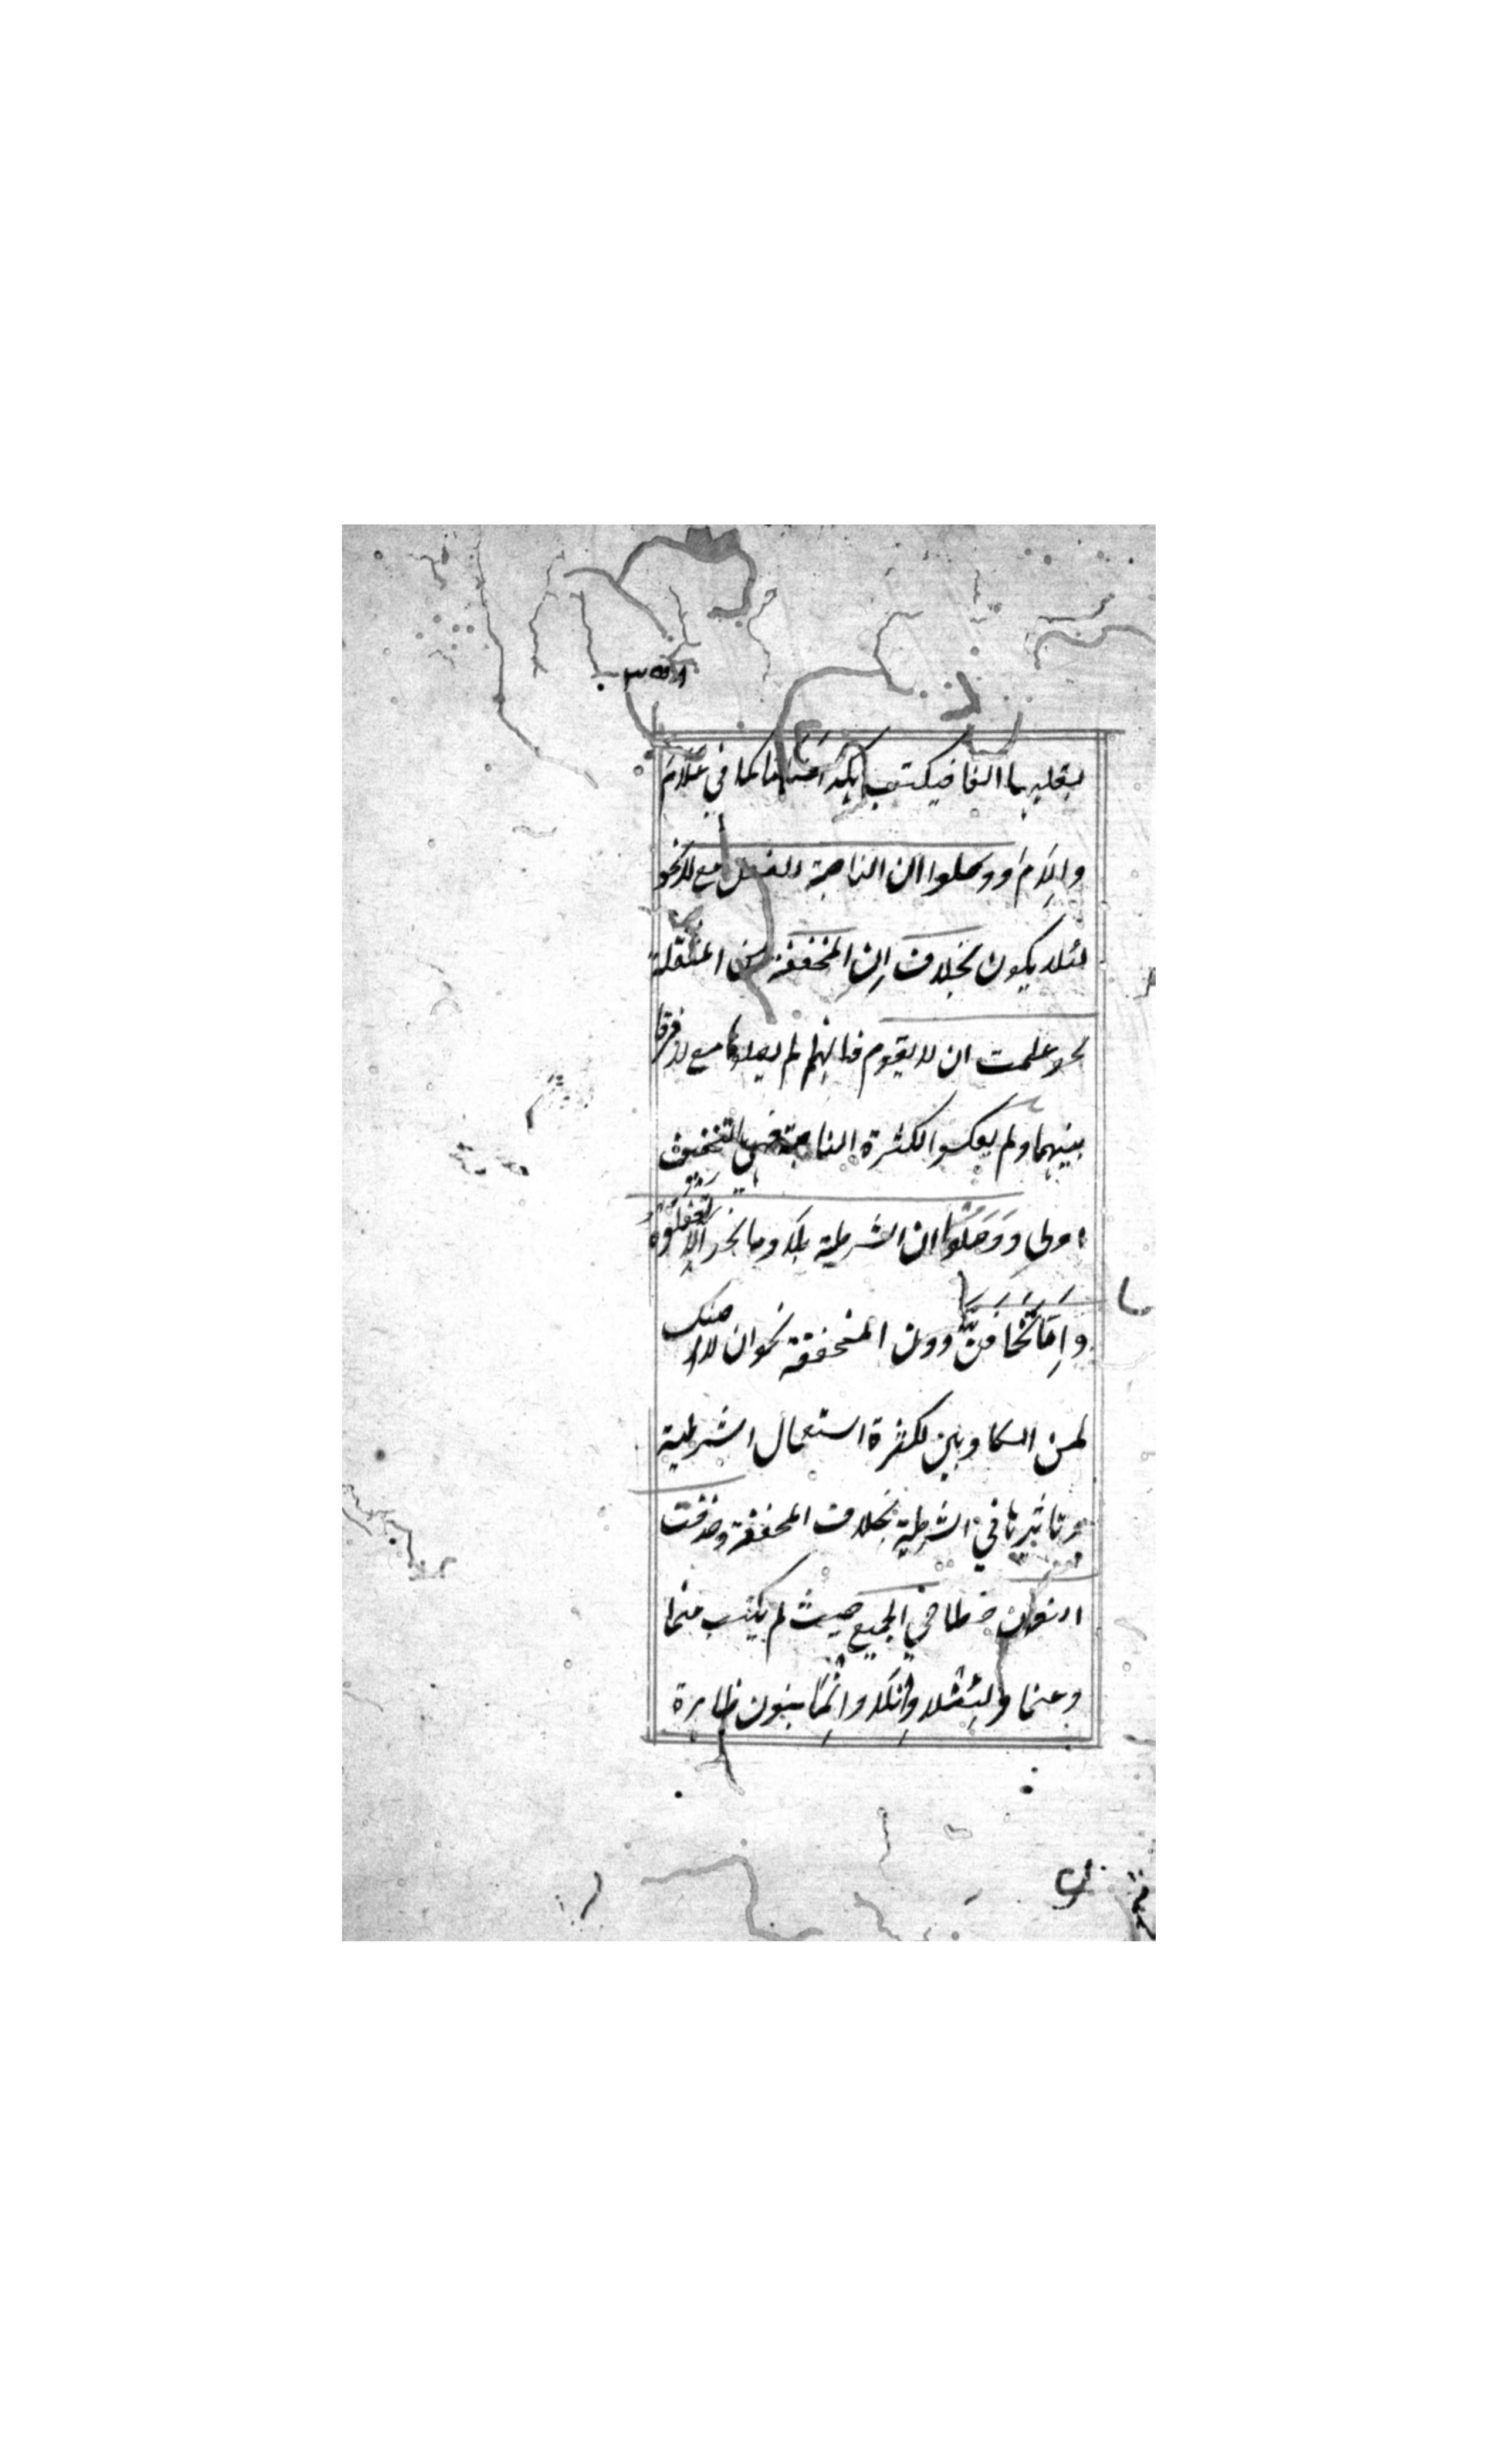 بقلبها الفا فيكتب هكذا متاما كما في علام
والام ووصلوا ان الناصبة للفعل مع لا نحو
لئلا يكون بخلاف ان المخففة من المثقلة
نحو علمت ان لا يقوم فانهم لم يصلوها مع لا فرقا
بينهما ولم يعكسوا لكثرة الناصبة فهي بالتخفيف
اولى ووصلوا ان الشرطية بلا وما نحو الا تفعلوه
واما تخافن دون المخففة نحو ان لا اظنك
لمن الكاذبين لكثرة استعمال الشرطية
وتاثيرها في الشرطية بخلاف المخففة وحذفت
النون خطا في الجميع حيث لم يكتب منما
وعنما ولئنلا وانلا وانما بنون ظاهرة